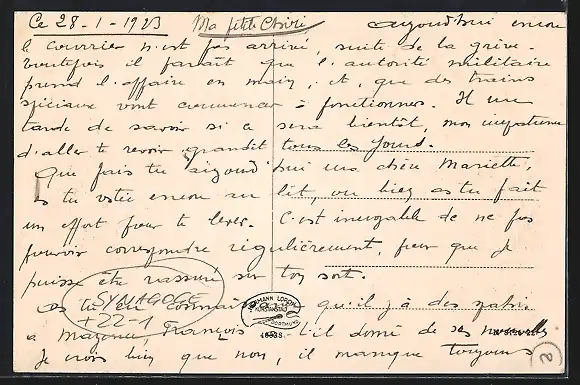 Ce 28-1-1923 Ma petite Chérie aujourd'hui encore
le courrier n'est pas arrivé, suite de la grève.
Toutefois il paraît que l'autorité militaire
prend l'affaire en main, et, que des trains
spéciaux vont commencer à fonctionner. Il me
tarde de savoir si ce sera bientôt, mon impatience
d'aller te revoir grandit tous les jours.
Que fais tu aujourd'hui ma chère Mariette,
es tu restée encore au lit, ou bien as tu fait
un effort pour te lever. C'est incroyable de ne pas
pouvoir correspondre régulièrement, pour que je
puisse être rassuré sur ton sort.
As tu eu connaissance qu'il y a des
à Mayence, François t'il donné de ses nouvelles
Je crois bien que non, il manque toujours
SYNAGOGE
+22-1
HERMANN LORCH
KUNSTANSTALT
DORTMUND
2